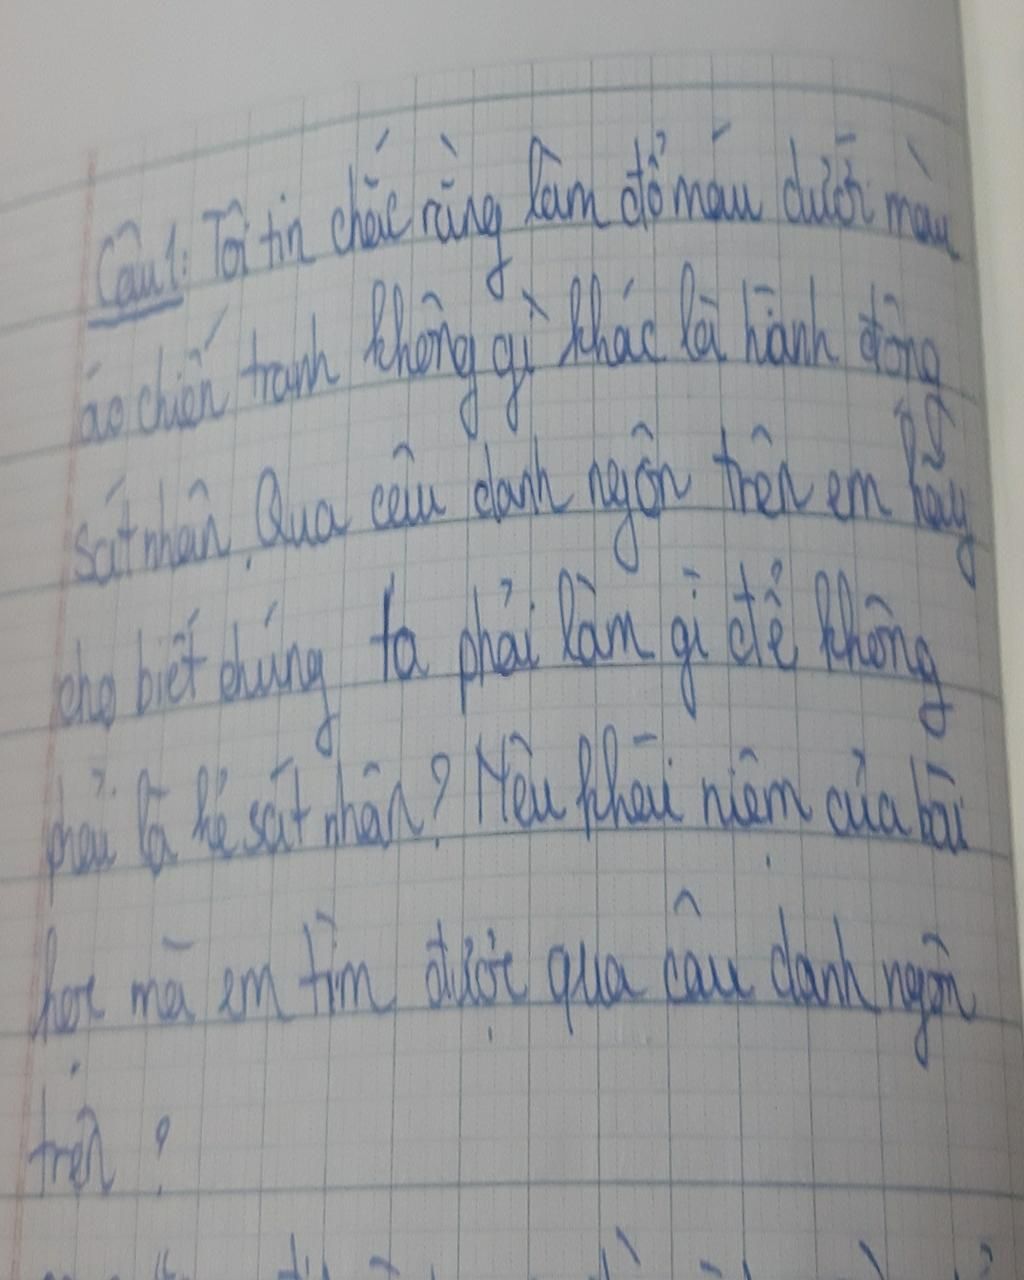 Câu 1: Tôi tin chắc rằng làm đổ máu dưới màu
áo chiến tranh không gì khác là hành động
sát nhân. Qua câu danh ngôn trên em hãy
cho biết chúng ta phải làm gì để không
phải là kẻ sát nhân? Nêu khái niệm của bài
học mà em tìm được qua câu danh ngôn
trên?